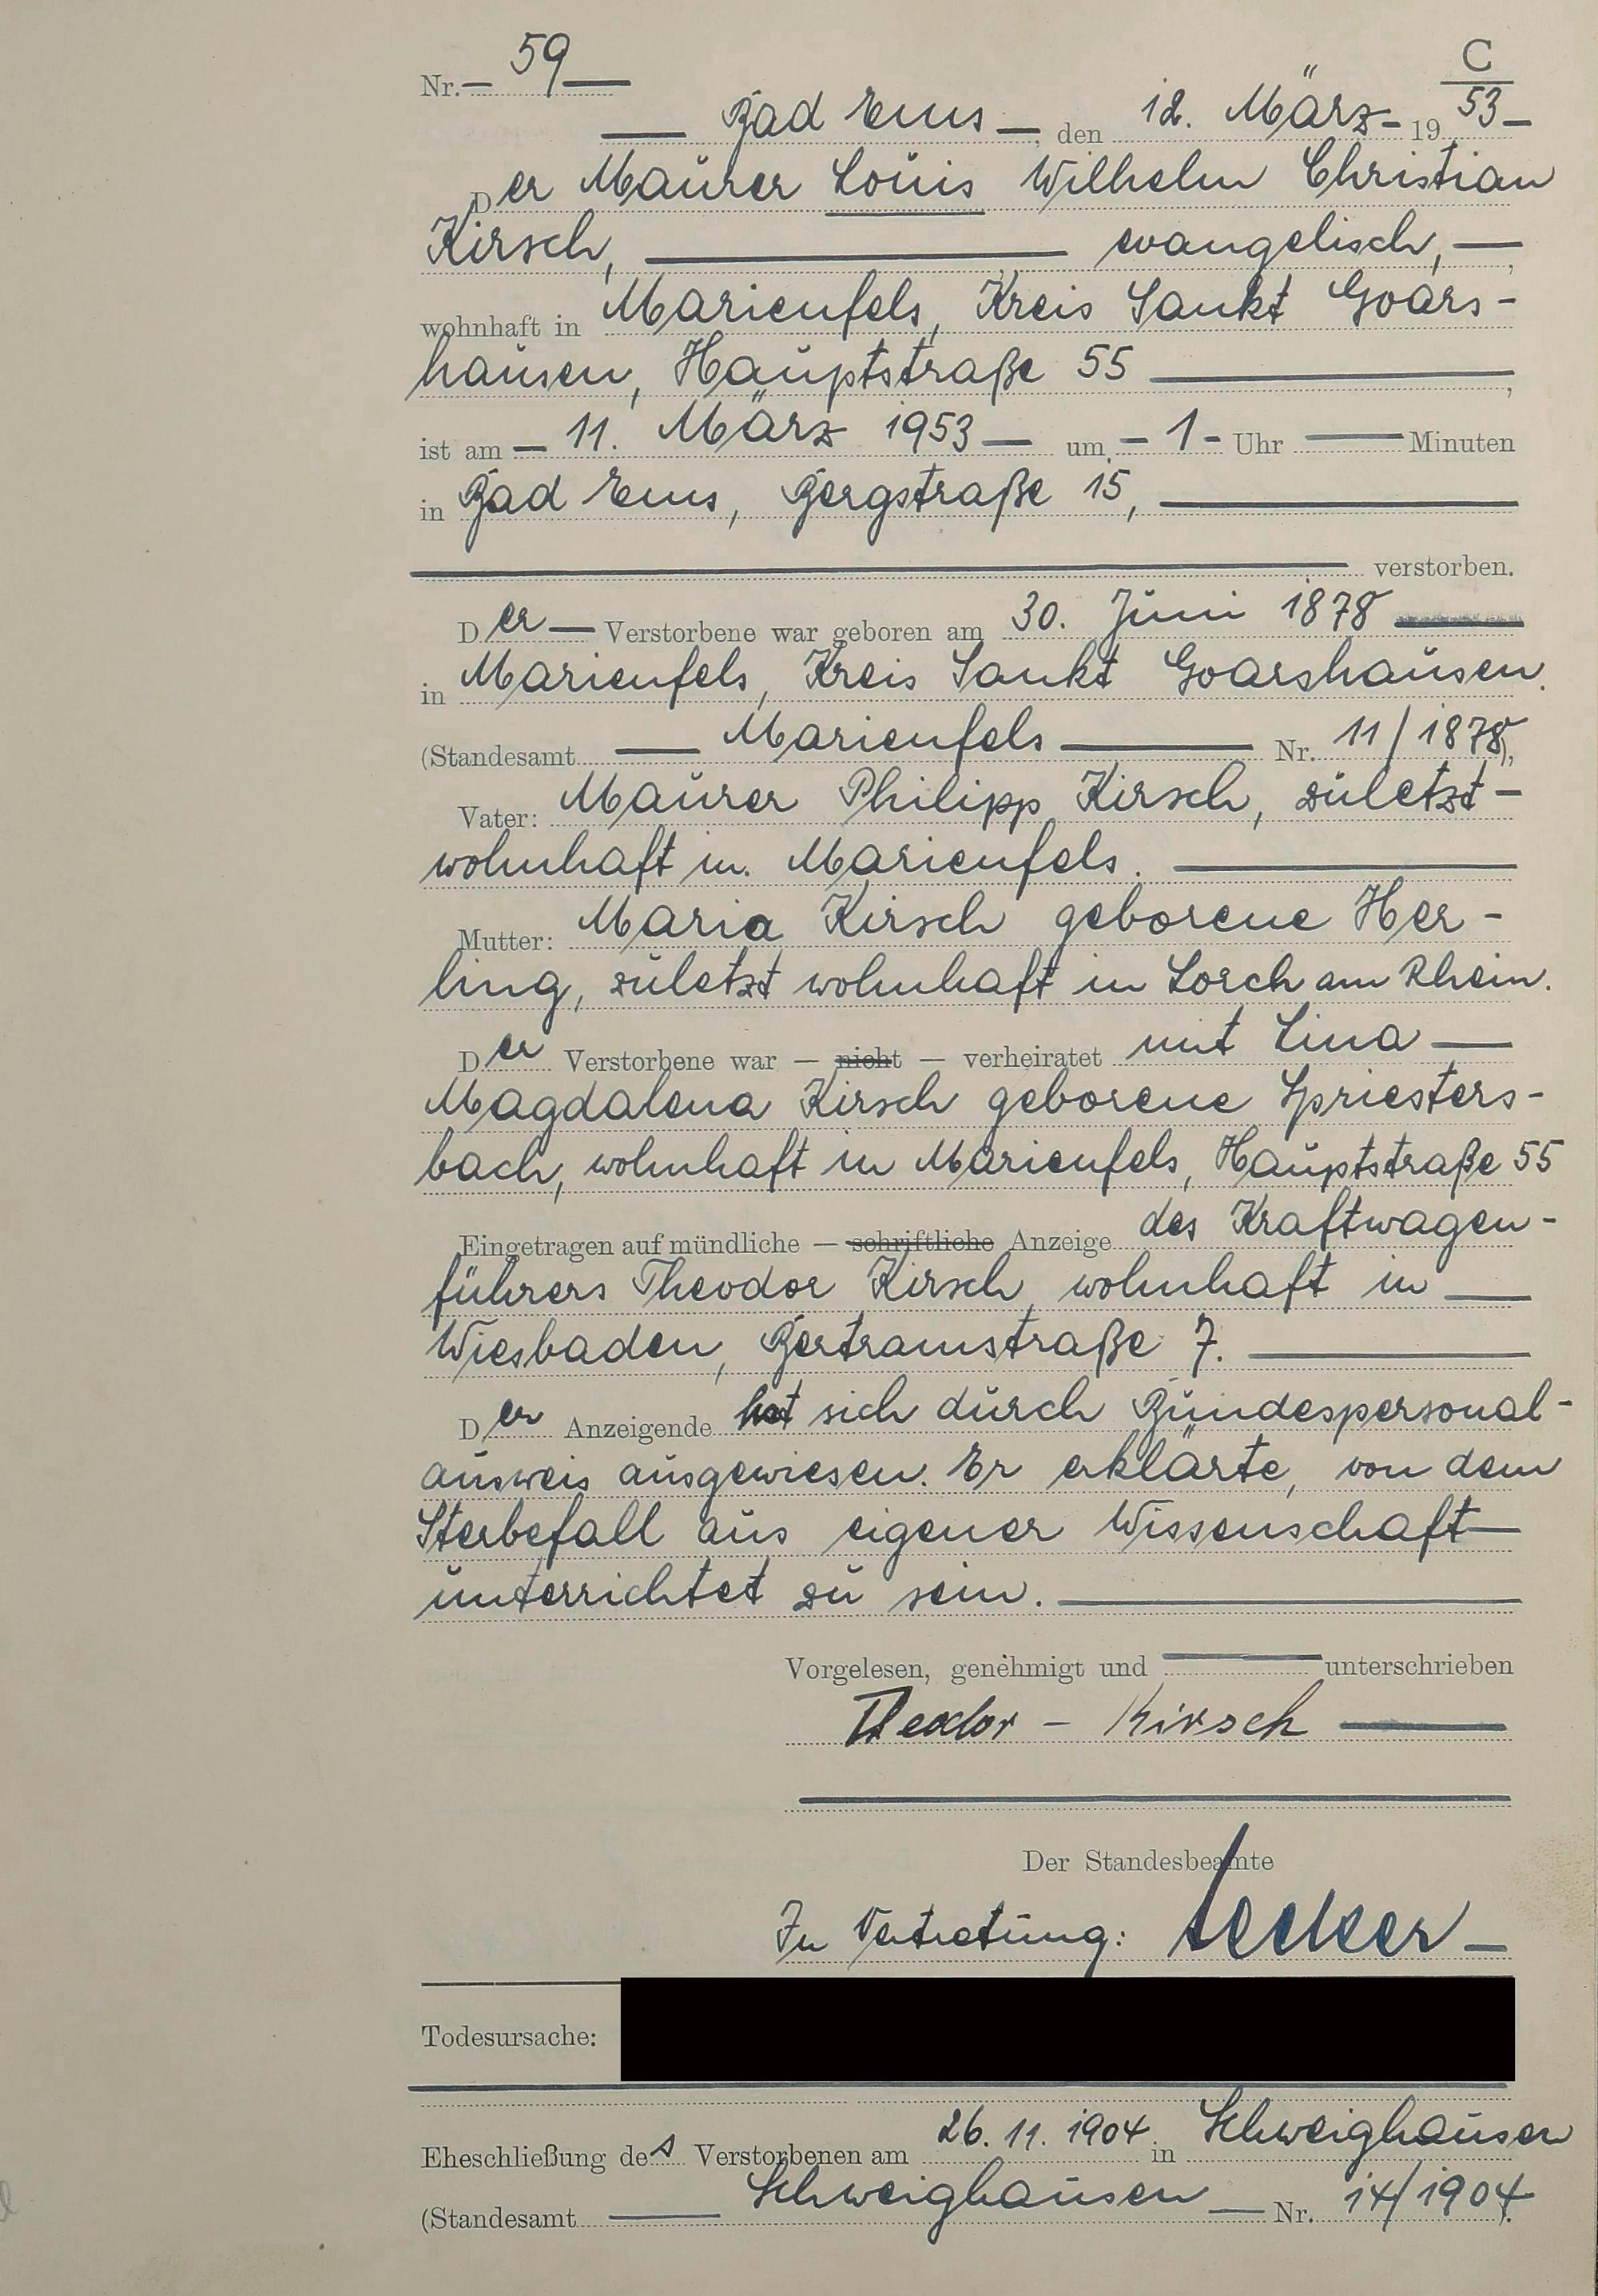 C
Nr. — 59 —
— Bad Ems —, den 12. März - 19 53 —
Der Maurer Louis Wilhelm Christian
Kirsch, — evangelisch, —,
wohnhaft in Marienfels, Kreis Sankt Goars-
hausen, Hauptstraße 55 —,
ist am — 11. März 1953 — um — 1 - Uhr — Minuten
in Bad Ems, Bergstraße 15, —
— verstorben.
Der — Verstorbene war geboren am 30. Juni 1878 —
in Marienfels, Kreis Sankt Goarshausen.
(Standesamt — Marienfels — Nr. 11/1878),
Vater: Maurer Philipp Kirsch, zuletzt —
wohnhaft in Marienfels. —
Mutter: Maria Kirsch geborene Her-
ling, zuletzt wohnhaft in Lorch am Rhein.
Der Verstorbene war — nicht — verheiratet mit Lina —
Magdalena Kirsch geborene Spriesters-
bach, wohnhaft in Marienfels, Hauptstraße 55
Eingetragen auf mündliche — schriftliche Anzeige des Kraftwagen-
führers Theodor Kirsch, wohnhaft in —
Wiesbaden, Bertramstraße 7. —
Der Anzeigende hat sich durch Bundespersonal-
ausweis ausgewiesen. Er erklärte, von dem
Sterbefall aus eigener Wissenschaft —
unterrichtet zu sein. —
Vorgelesen, genehmigt und — unterschrieben
Theodor - Kirsch —
Der Standesbeamte
In Vertretung:
Todesursache:
Eheschließung des Verstorbenen am 26. 11. 1904 in Schweighausen
(Standesamt — Schweighausen — Nr. 14/1904).